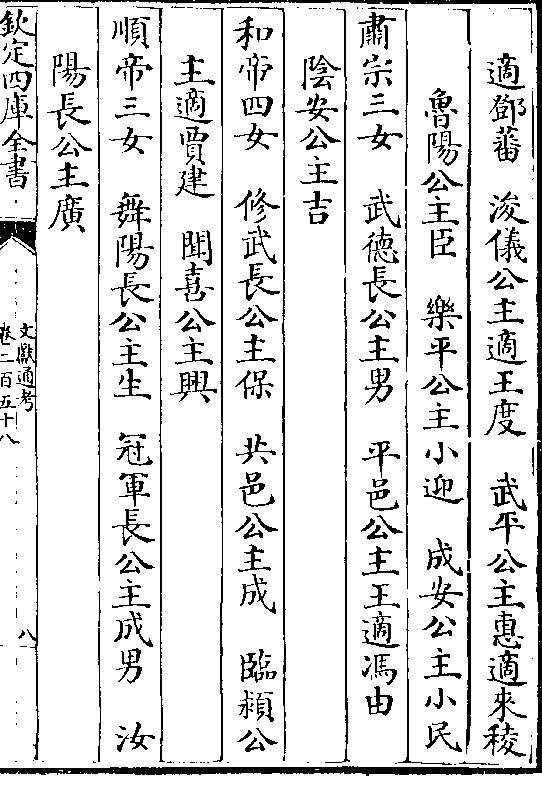 適鄧蕃　浚儀公主適王度　武平公主惠適來稜
魯陽公主臣　樂平公主小迎　成安公主小民
肅宗三女　武德長公主男　平邑公主王適馮由
陰安公主吉
和帝四女　修武長公主保　共邑公主成　臨潁公
主適賈建　聞喜公主興
順帝三女　舞陽長公主生　冠軍長公主成男　汝
陽長公主廣
欽定四庫全書
文獻通考
卷二百五十八
八